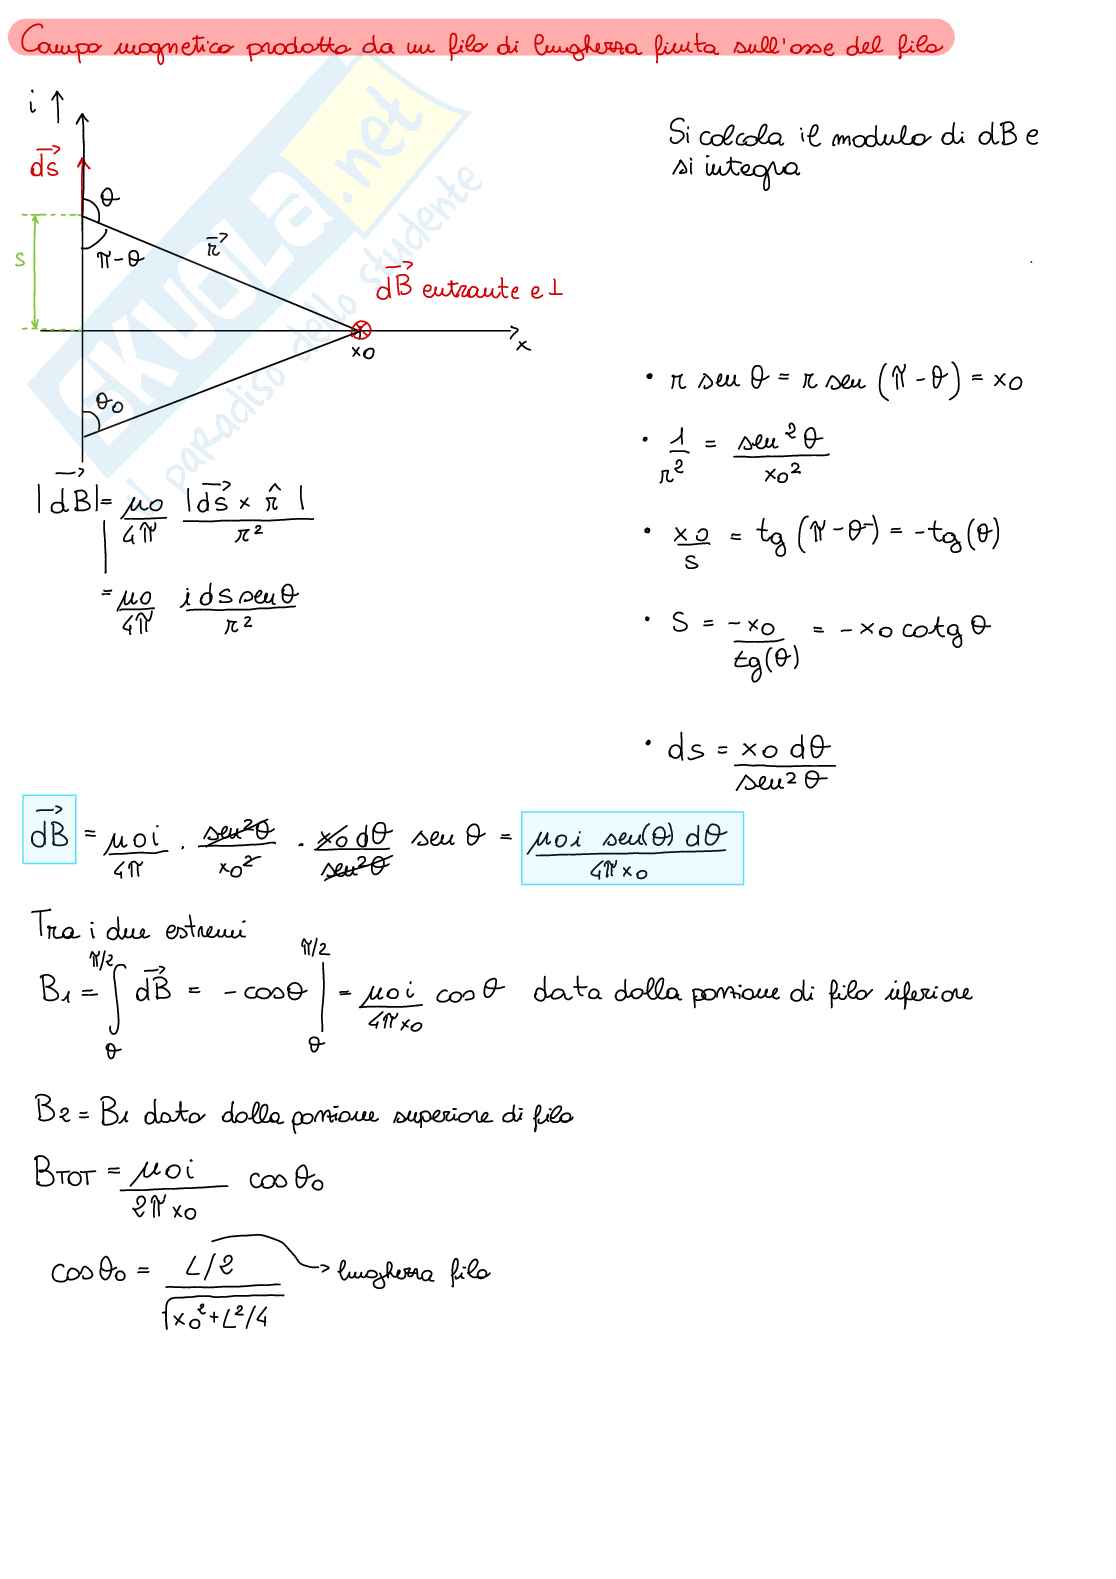 Campo magnetico prodotto da un filo di lunghezza finita sull'asse del filo
i ↑
Si calcola il modulo di dB e
si integra
ds
θ
π-θ
r
s
dB entrante e ⊥
x
x0
θ0
SKUOLA.net
il paradiso dello studente
• r sen θ = r sen (π-θ) = x0
• 1/r² = sen²θ/x0²
• x0/s = tg (π-θ) = -tg(θ)
• s = -x0/tg(θ) = -x0 cotg θ
• ds = x0 dθ/sen²θ
|dB| = μ0/4π |ds × r̂|/r²
= μ0/4π i ds sen θ/r²
dB = μ0i/4π · sen²θ/x0² · x0 dθ/sen²θ sen θ = μ0i sen(θ) dθ/4πx0
Tra i due estremi
B1 = ∫θ^π/2 dB = -cosθ |θ^π/2 = μ0i/4πx0 cos θ data dalla porzione di filo iferiore
B2 = B1 dato dalla porzione superiore di filo
BTOT = μ0i/2πx0 cos θ0
cosθ0 = L/2/√x0²+L²/4 → lunghezza filo